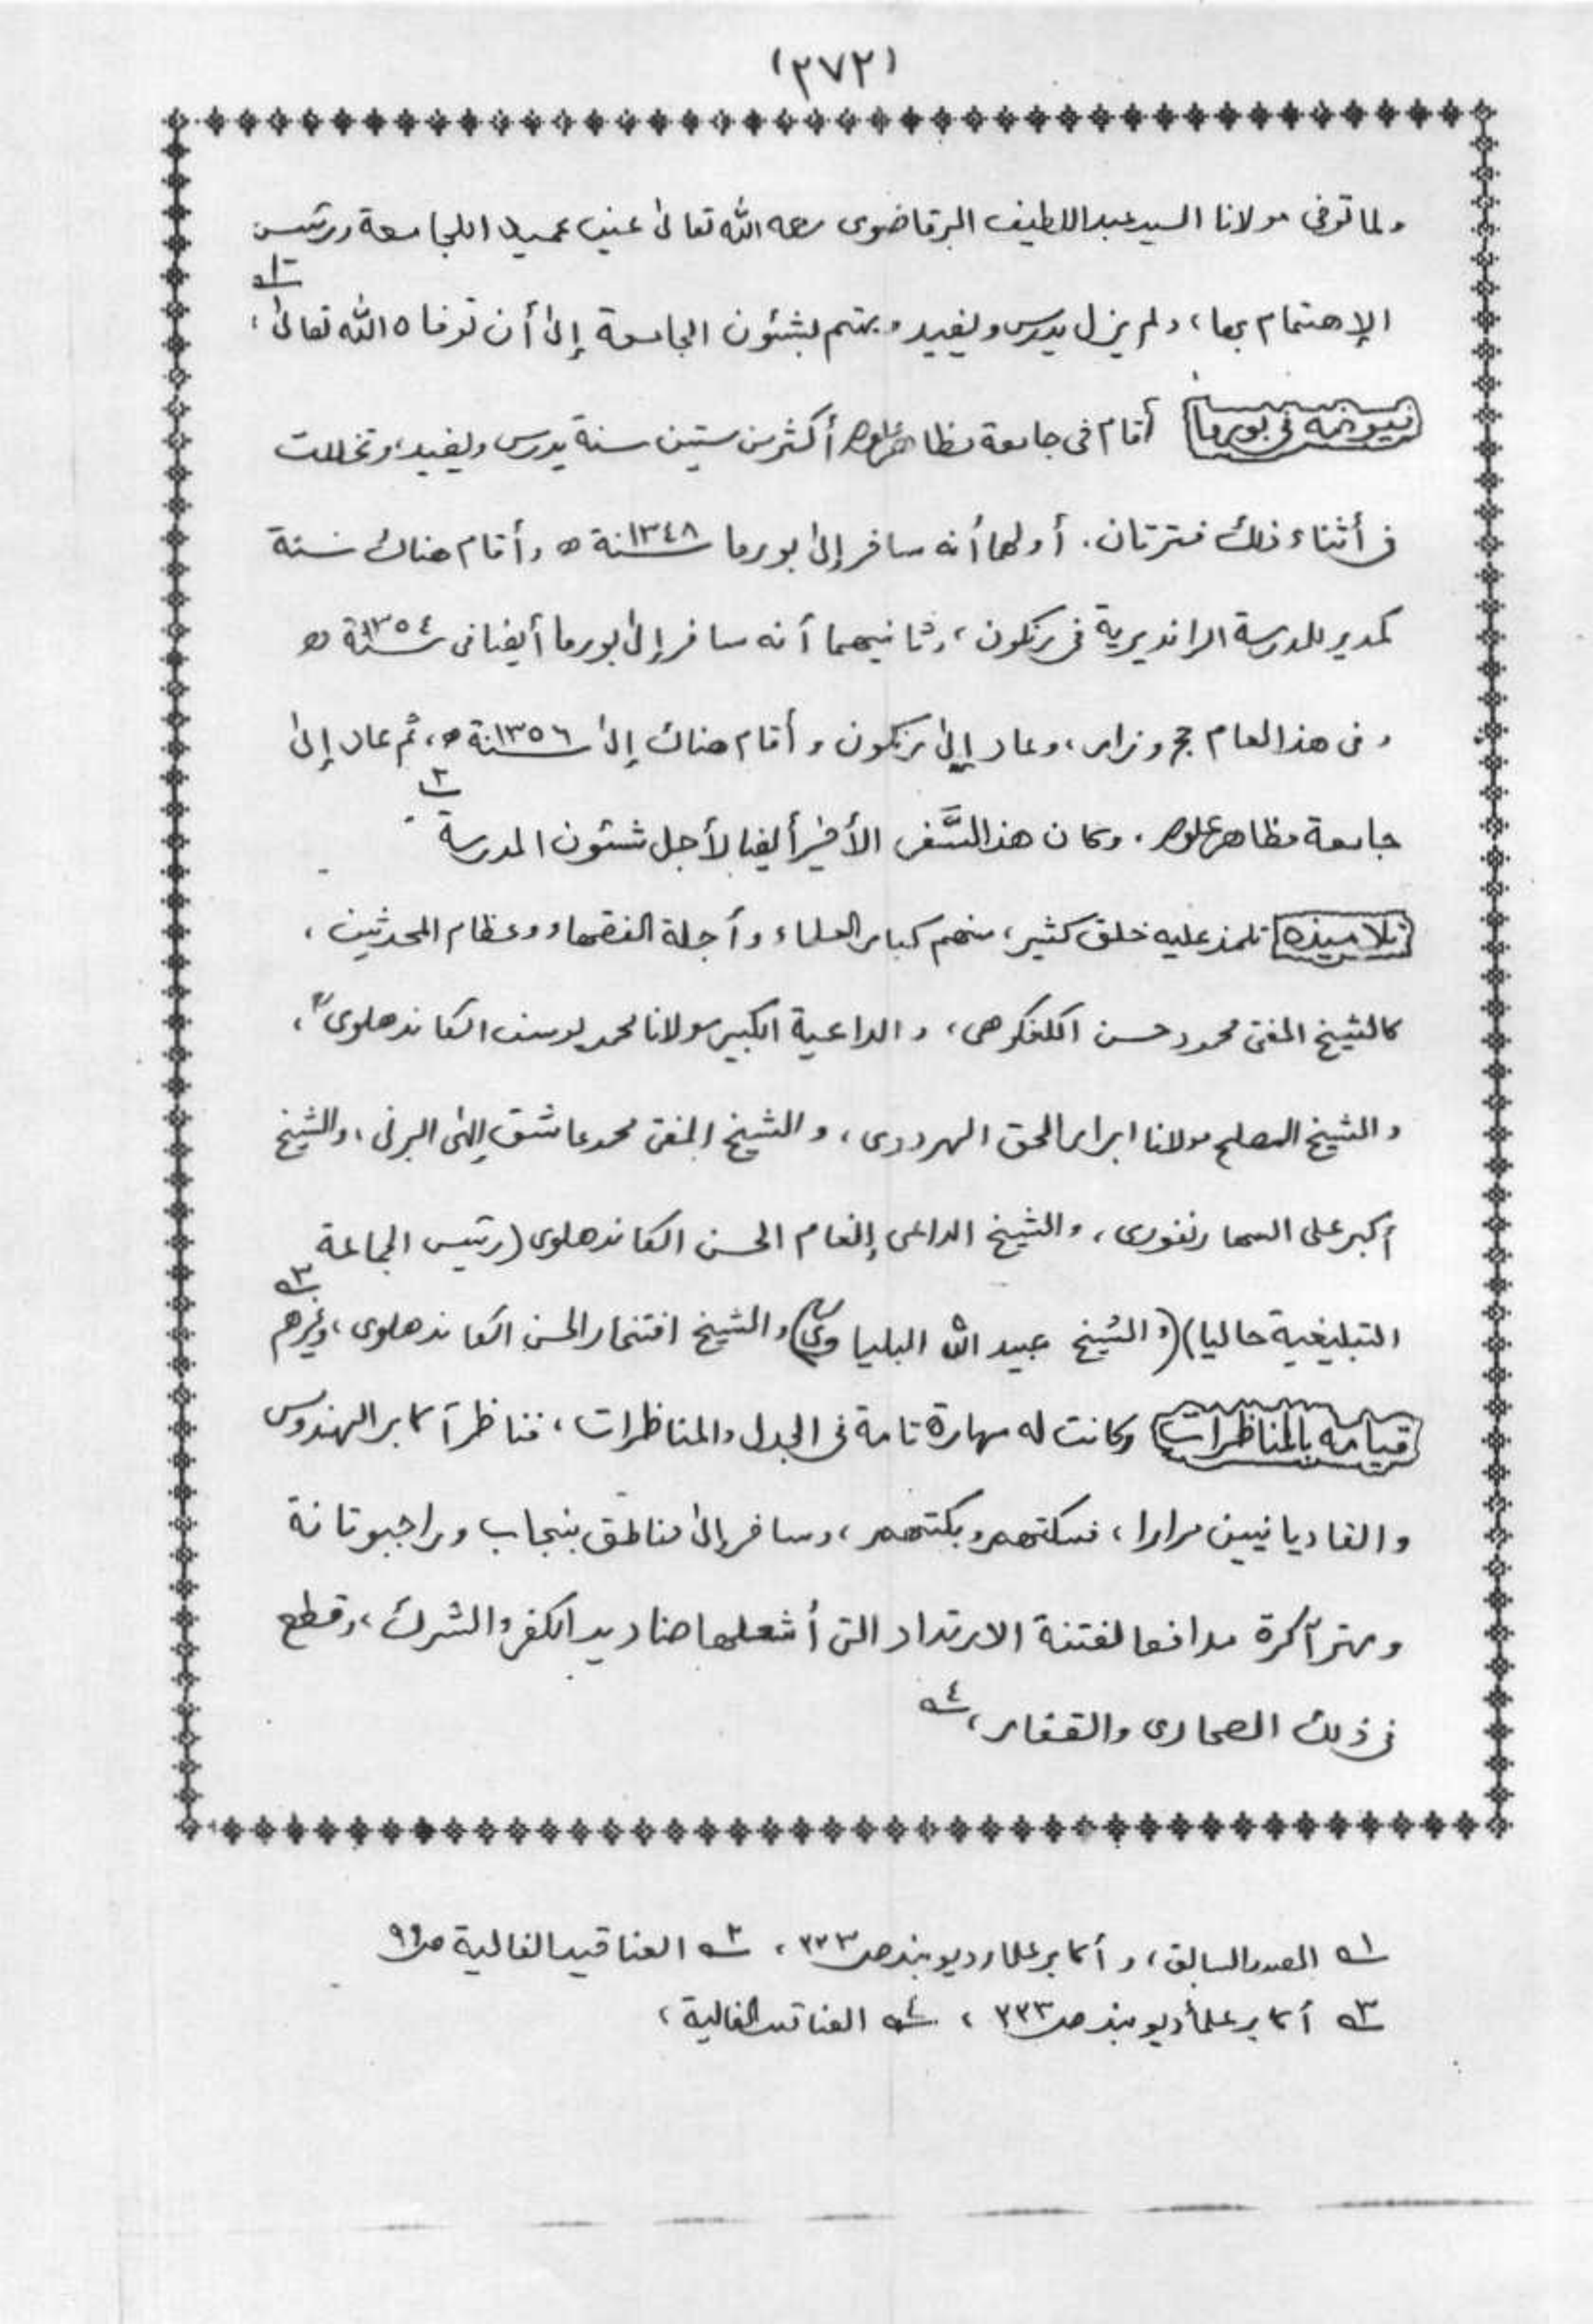 (٢٧٢)
ولما توفى مولانا السيد عبد اللطيف البرقاضوى رحمه الله تعالىٰ عين عميدا للجامعة ورئيس
الإهتمام بها، ولم يزل يدرس ويفيد ويهتم بشئون الجامعة إلىٰ أن توفاه الله تعالىٰ، ١
فيوضه فى بورما أقام فى جامعة مظاهر علوم أكثر من ستين سنة يدرس ويفيد، وتخللت
فى أثناء ذلك فترتان. أولهما أنه سافر إلىٰ بورما سنة ١٣٤٨ ه وأقام هناك سنة
كمدير للمدرسة الرانديرية فى رنكون، وثانيهما أنه سافر إلىٰ بورما أيضا فى سنة ١٣٥٤ ه
وفى هذا العام حج وزار، وعاد إلىٰ رنكون وأقام هناك إلىٰ سنة ١٣٥٦ ه، ثم عاد إلىٰ
جامعة مظاهر علوم. وكان هذا السَّفر الأخير أيضا لأجل شئون المدرسة ٢
تلاميذه تلمذ عليه خلق كثير، منهم كبار العلماء وأجلة الفقهاء وعظام المحدثين،
كالشيخ المفتى محمود حسن الكنكوهى، والداعية الكبير مولانا محمد يوسف الكاندهلوى،
والشيخ المصلح مولانا ابرار الحق الهردوى، والشيخ المفتى محمد عاشق إلٰهى البرنى، والشيخ
أكبر على السهارنفورى، والشيخ الداعى إنعام الحسن الكاندهلوى (رئيس الجماعة
التبليغية حاليا) (والشيخ عبيد الله البلياوى) والشيخ افتخار الحسن الكاندهلوى، وغيرهم ٣
قيامه بالمناظرات وكانت له مهارة تامة فى الجدل والمناظرات، فناظر آكابر الهندوس
والقاديانيين مرارا، فسكتهم وبكتهم، وسافر إلىٰ مناطق بنجاب وراجبوتانة
وميتر آكرة مدافعا لفتنة الارتداد التى أشعلها صناديد الكفر والشرك، وقطع
فى ذلك الصحارى والقفار، ٤
١ المصدر السابق، وأكابر علماء ديوبند ص ٢٢٣، ٢ العناقيد الغالية ص ٩٩
٣ أكابر علماء ديوبند ص ٢٢٣، ٤ العناقيد الغالية،